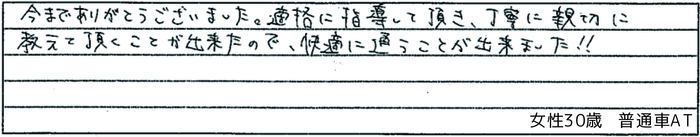 今までありがとうございました。適格に指導して頂き、丁寧に親切に
教えて頂くことが出来たので、快適に通うことが出来ました!!
女性30歳 普通車AT